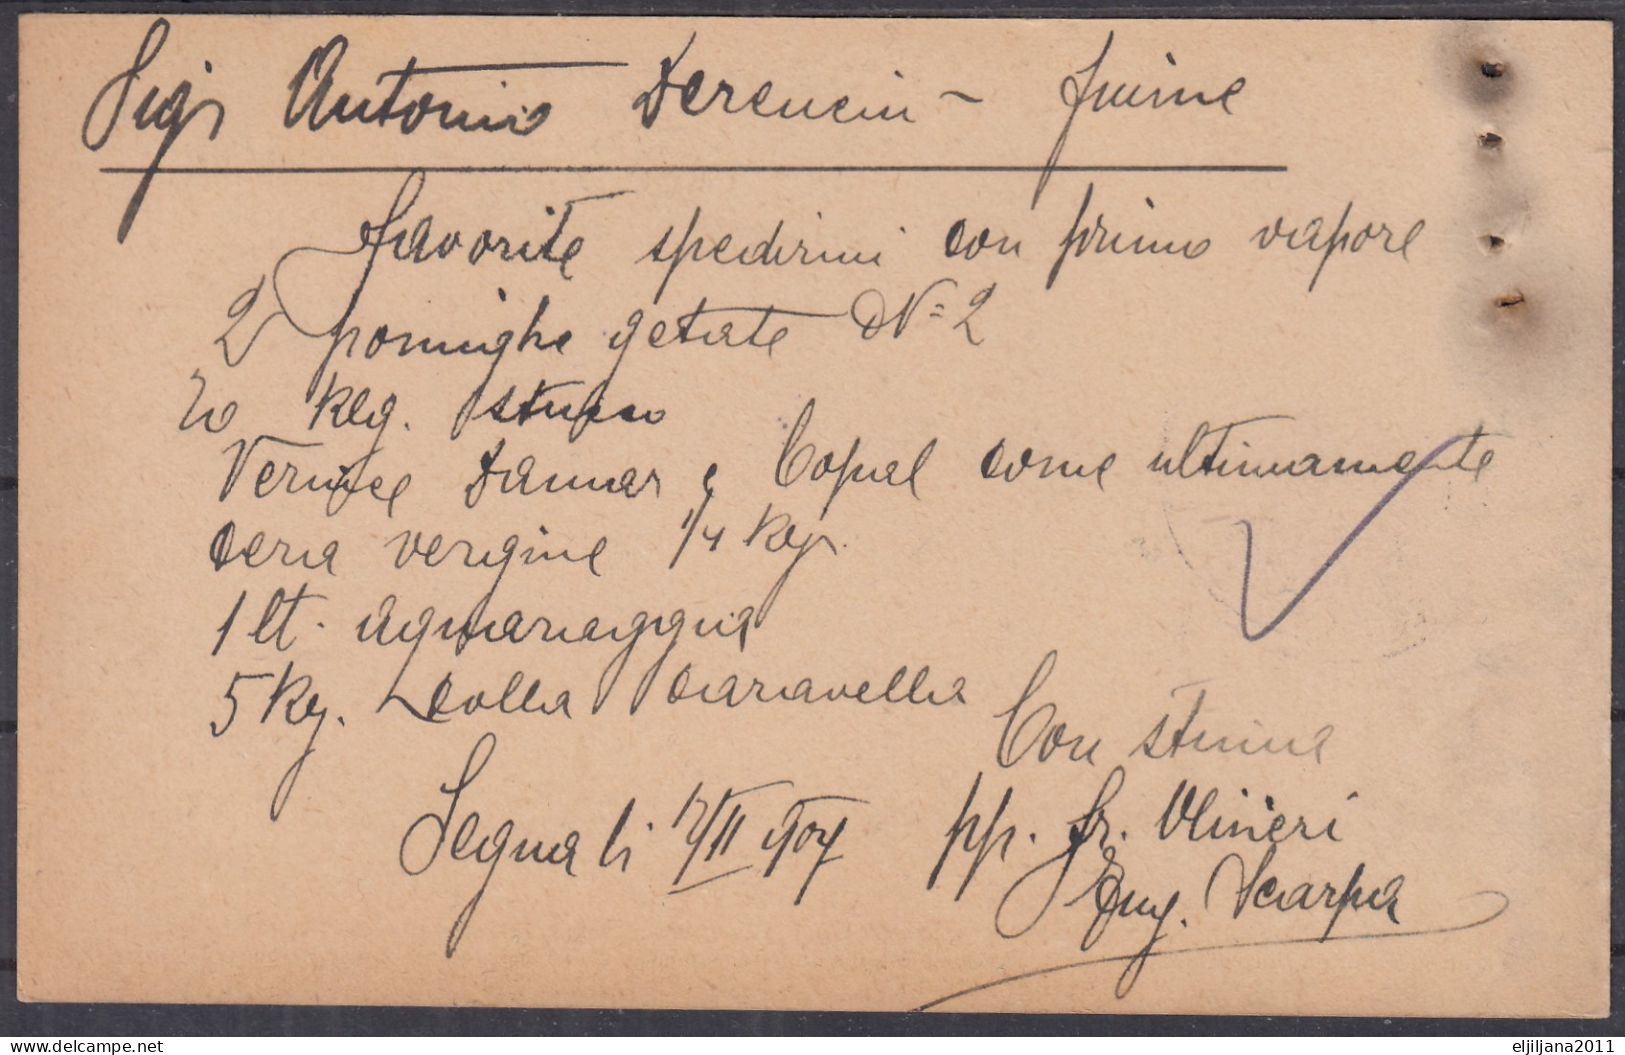 Sigr Antonio Derencin - Fiume
Favorite spedirmi con primo vapore
2 pomighe getate No 2
20 Klg. stucco
Vernice Dammar e Copal come ultimamente
Cera vergine 1/4 Kgr.
1 lt. aquaraggia
5 Kg. Colla Caravella
Con stima
Segna li 12/II 907 pp. Fr. Olivieri
Eug. Scarpa
delcampe.net
eljiljana2011